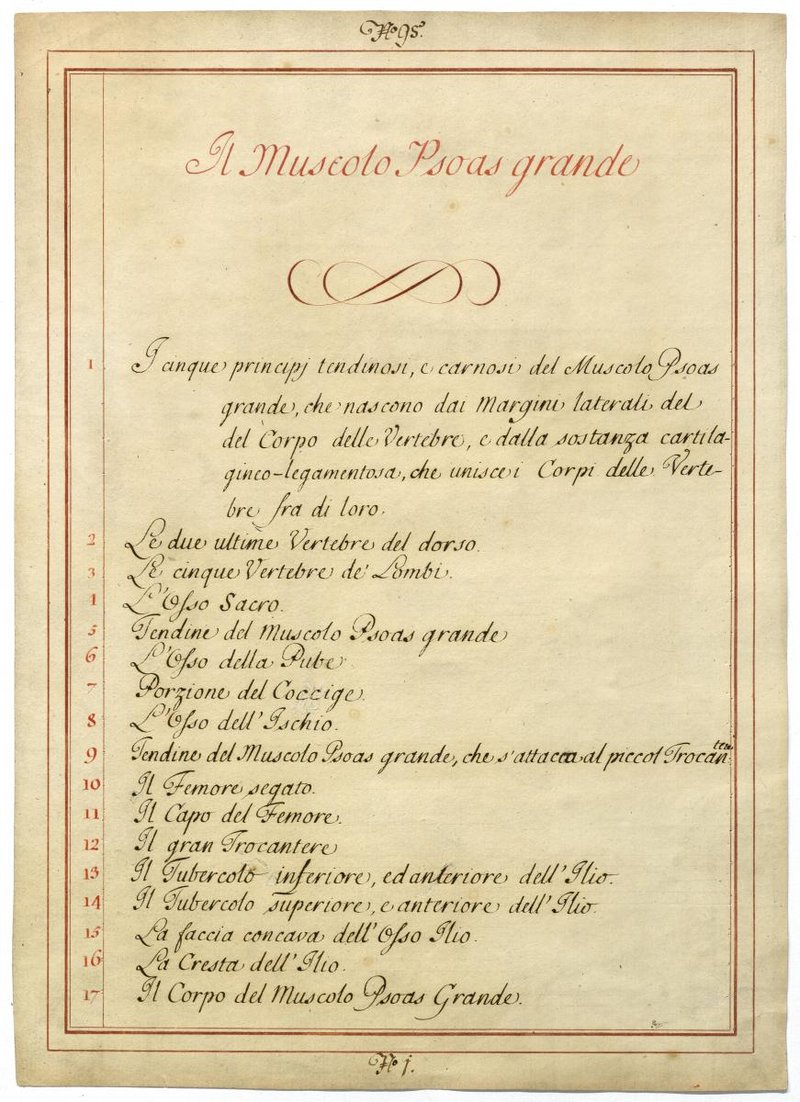 No 95.
Il Muscolo Psoas grande
1 I cinque principj tendinosi, e carnosi del Muscolo Psoas
grande, che nascono dai Margini laterali del
del Corpo delle Vertebre, e dalla sostanza cartila-
gineo-legamentosa, che unisce i Corpi delle Verte-
bre fra di loro.
2 Le due ultime Vertebre del dorso.
3 Le cinque Vertebre de' Lombi.
4 L'Osso Sacro.
5 Tendine del Muscolo Psoas grande
6 L'Osso della Pube
7 Porzione del Coccige.
8 L'Osso dell'Ischio.
9 Tendine del Muscolo Psoas grande, che s'attacca al piccol Trocan:
10 Il Femore segato.
11 Il Capo del Femore.
12 Il gran Trocantere
13 Il Tubercolo inferiore, ed anteriore dell'Ilio.
14 Il Tubercolo superiore, e anteriore dell'Ilio.
15 La faccia concava dell'Osso Ilio.
16 La Cresta dell'Ilio.
17 Il Corpo del Muscolo Psoas Grande.
No 1.